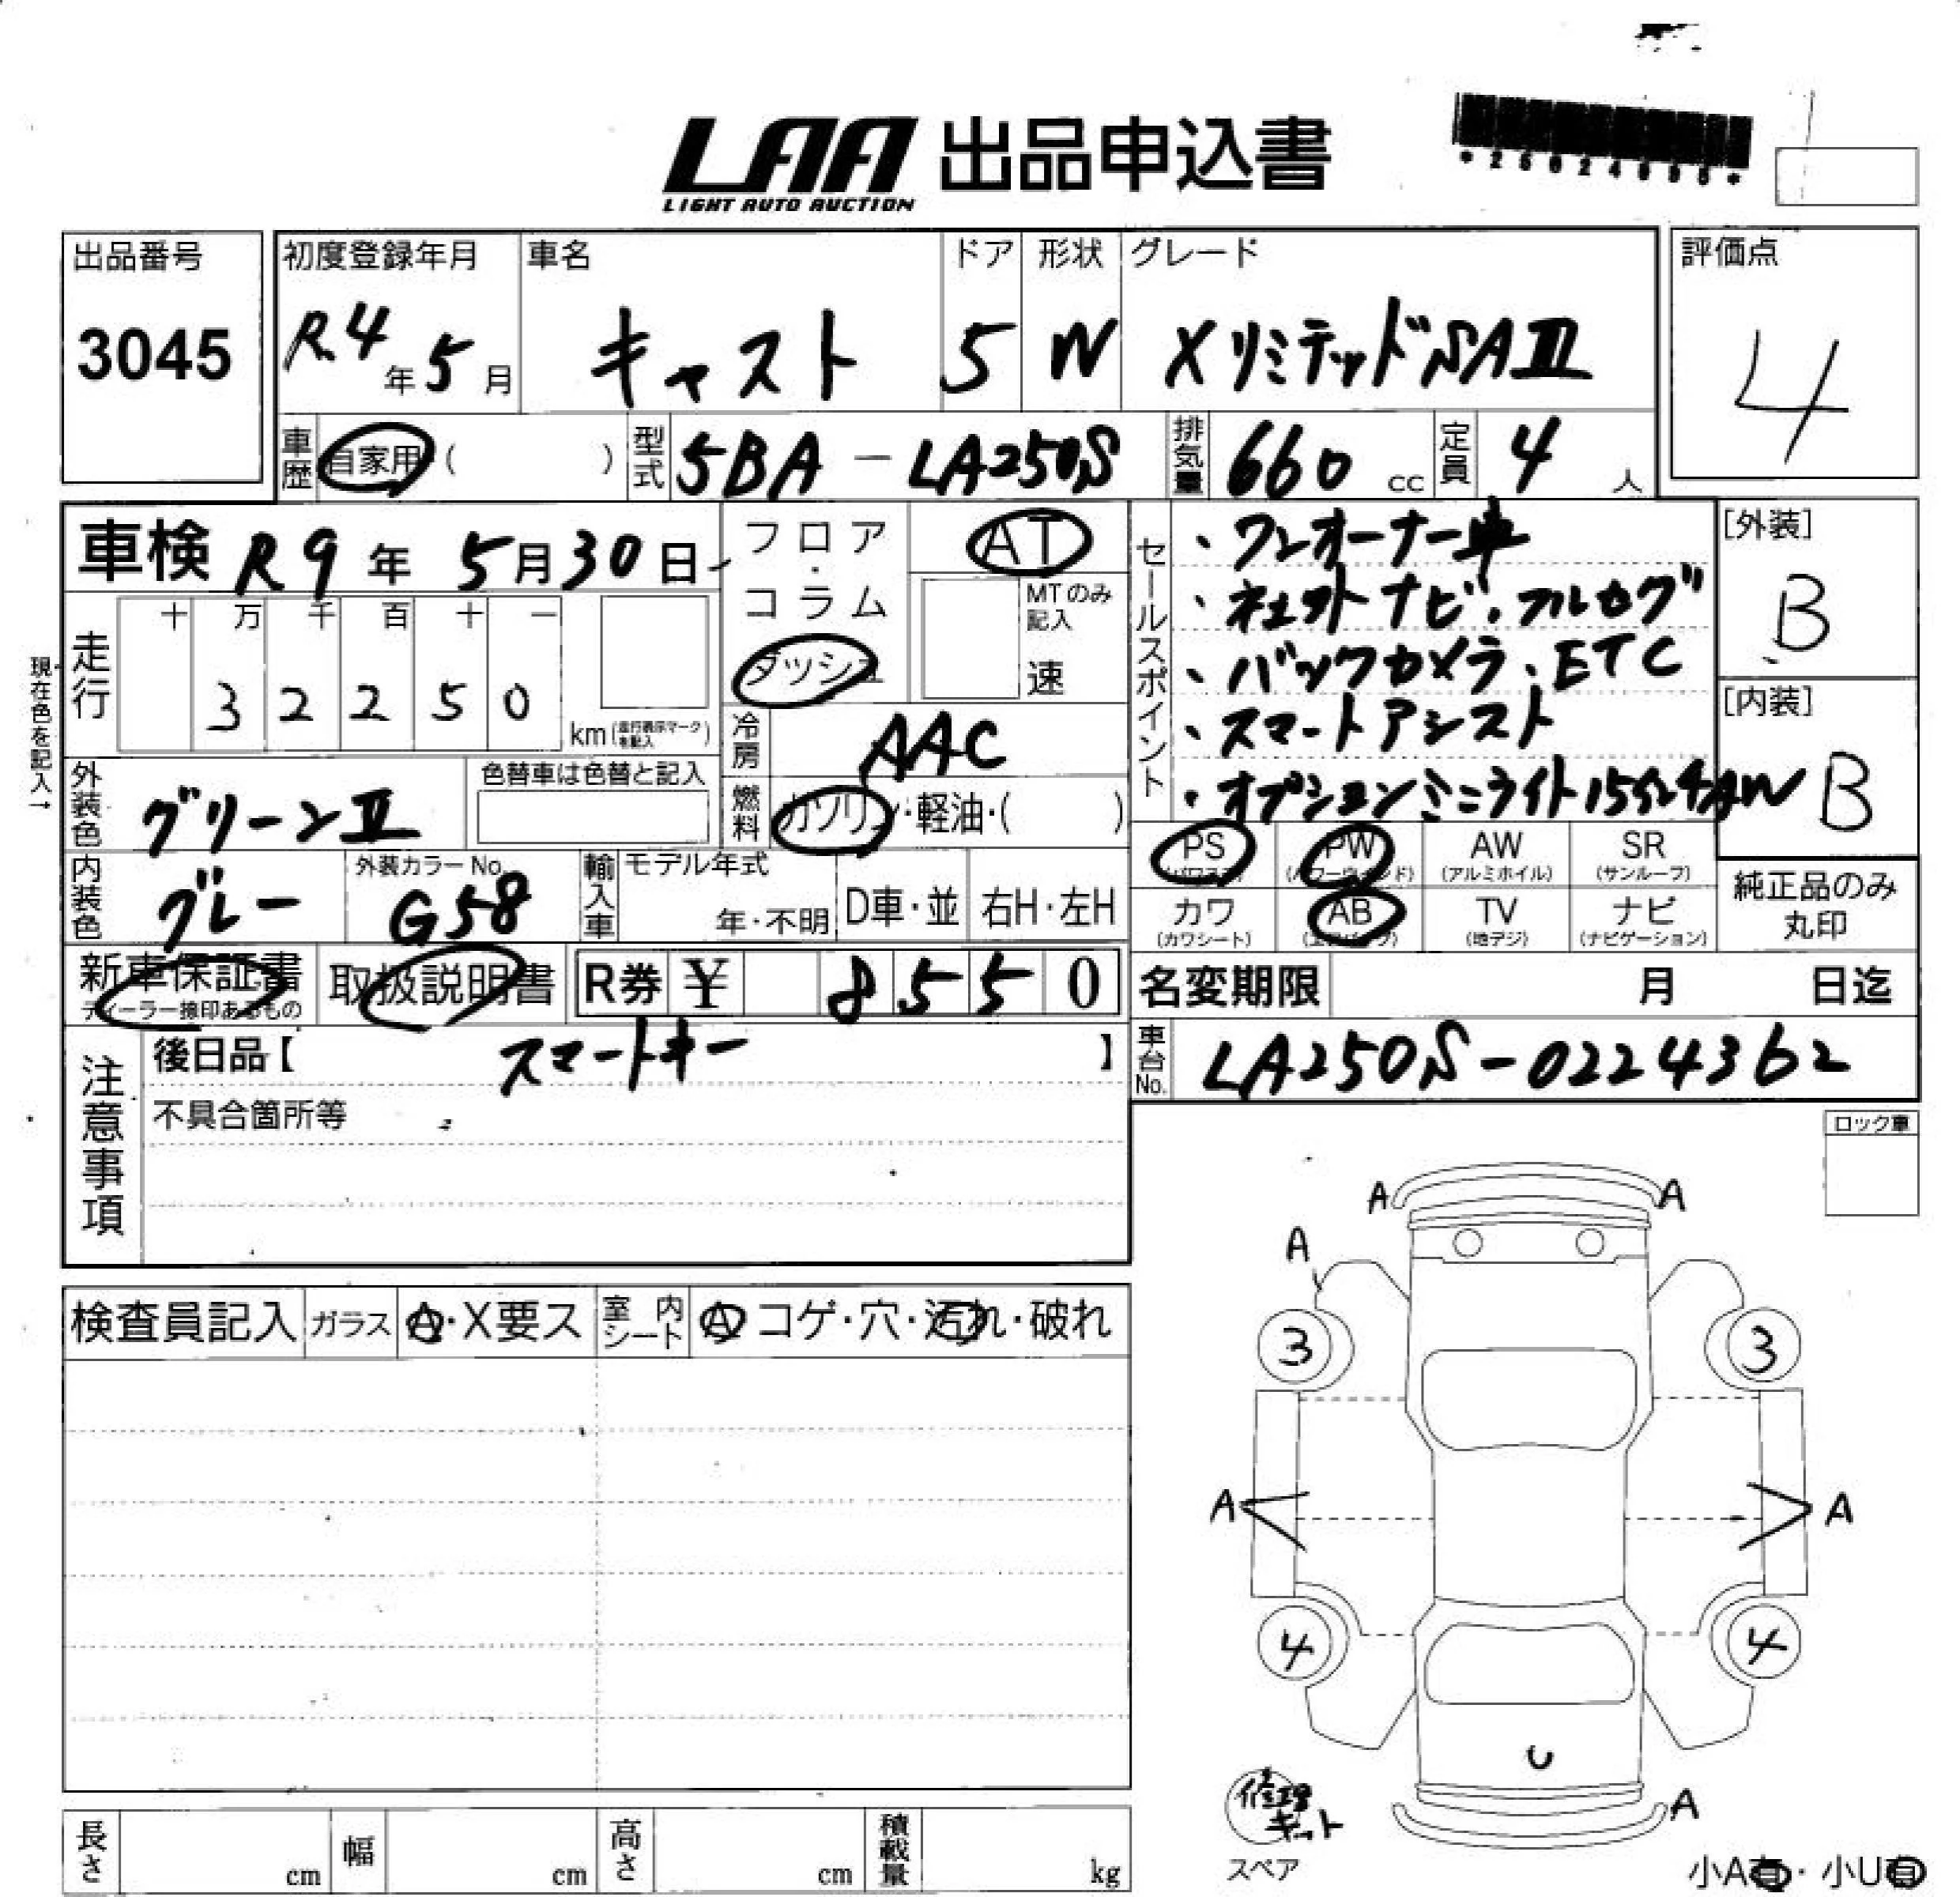 LAA 出品申込書
LIGHT AUTO AUCTION
出品番号
3045
初度登録年月
R4年5月
車名
キャスト
ドア
5
形状
W
グレード
XリミテッドSAⅢ
評価点
4
車歴 自家用 ( )
型式 5BA-LA250S
排気量 660 cc
定員 4 人
車検 R9年5月30日
フロア・コラム
ダッシュ
AT
MTのみ記入
速
セールスポイント
・ワンオーナー車
・社外ナビ・フルセグ
・バックカメラ・ETC
・スマートアシスト
・オプションミニライト15インチAW
[外装]
B
[内装]
B
現在色を記入→
走行
十 万 千 百 十 一
3 2 2 5 0
km (走行表示マークを記入)
冷房 AAC
外装色 グリーンⅡ
色替車は色替と記入
燃料 ガソリン・軽油・( )
PS PW AW (アルミホイル) SR (サンルーフ)
カワ (カワシート) AB TV (地デジ) ナビ (ナビゲーション)
純正品のみ丸印
内装色 グレー
外装カラーNo.
G58
輸入車
モデル年式
年・不明
D車・並
右H・左H
新車保証書
ディーラー捺印あるもの
取扱説明書
R券 ¥ 8 5 5 0
名変期限 月 日迄
注意事項
後日品【 スマートキー 】
車台No. LA250S-0224362
不具合箇所等
ロック車
検査員記入
ガラス A・X要ス
室内シート A コゲ・穴・汚れ・破れ
A A
A
3 3
A A
4 4
U
A
修理キット
スペア
長さ cm
幅 cm
高さ cm
積載量 kg
小A有・小U有